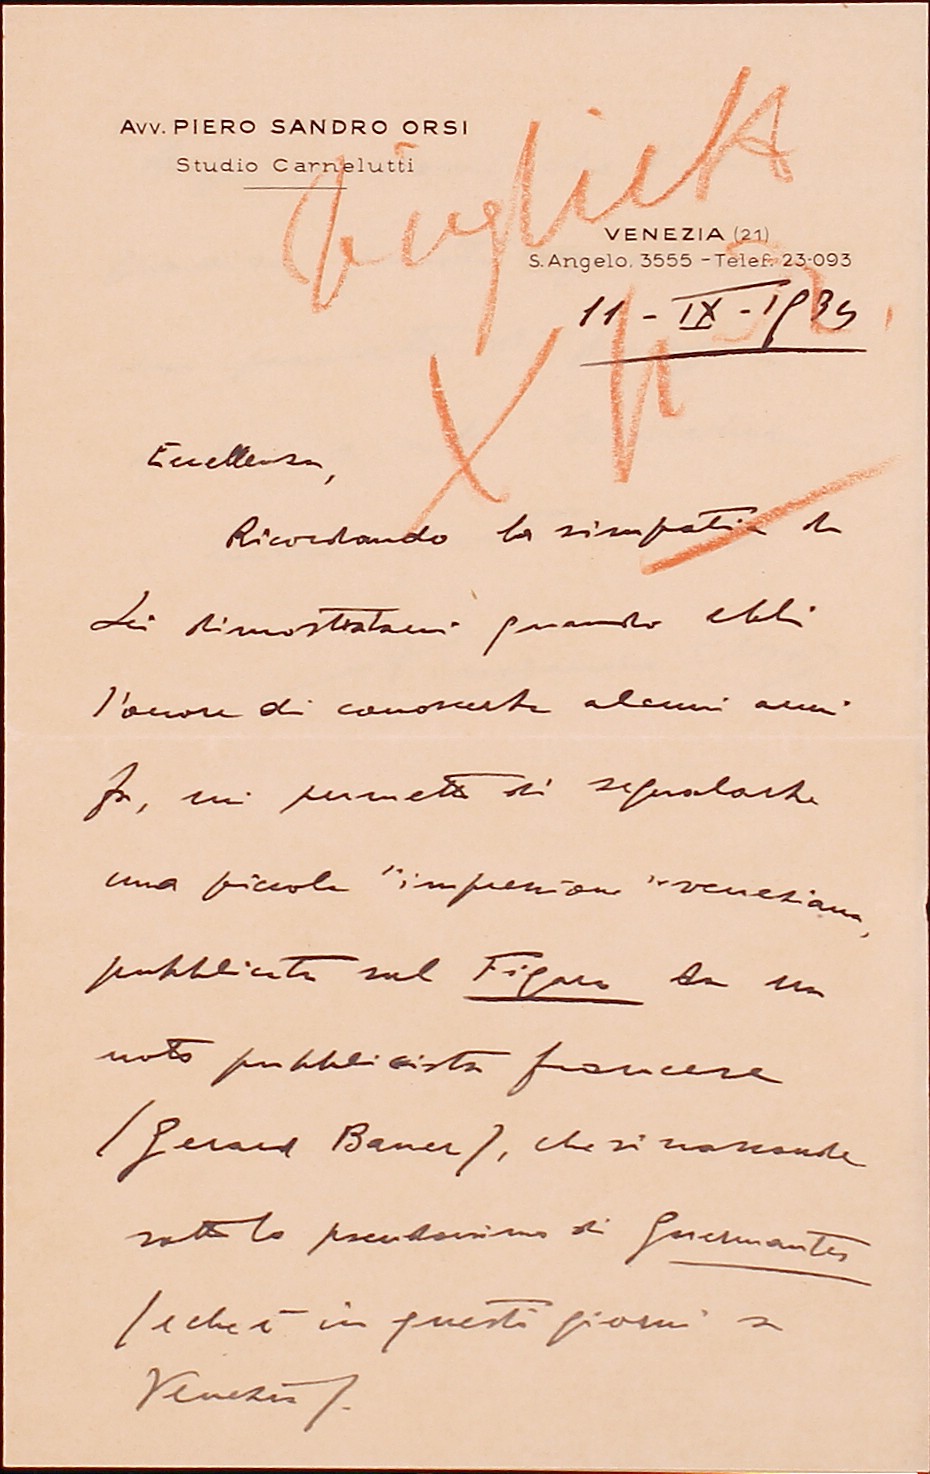 Avv. PIERO SANDRO ORSI
Studio Carnelutti
VENEZIA (21)
S. Angelo, 3555 - Telef. 23-093
11 - IX - 1934
Eccellenza,
Ricordando la simpatia da
Lei dimostratami quando ebbi
l'onore di conoscerla alcuni anni
fa, mi permetto di segnalarle
una piccola "impressione" veneziana,
pubblicata sul Figaro da un
noto pubblicista francese
(Gerard Bauer), che si nasconde
sotto lo pseudonimo di Guermantes
(e che è in questi giorni a
Venezia).